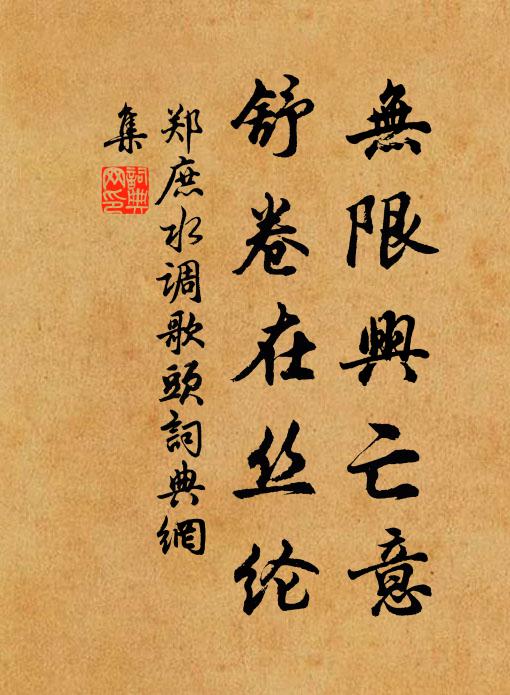 無限興亡意
舒卷在丝纶
郑庶水调歌頭詞典網
集
詞典
网印